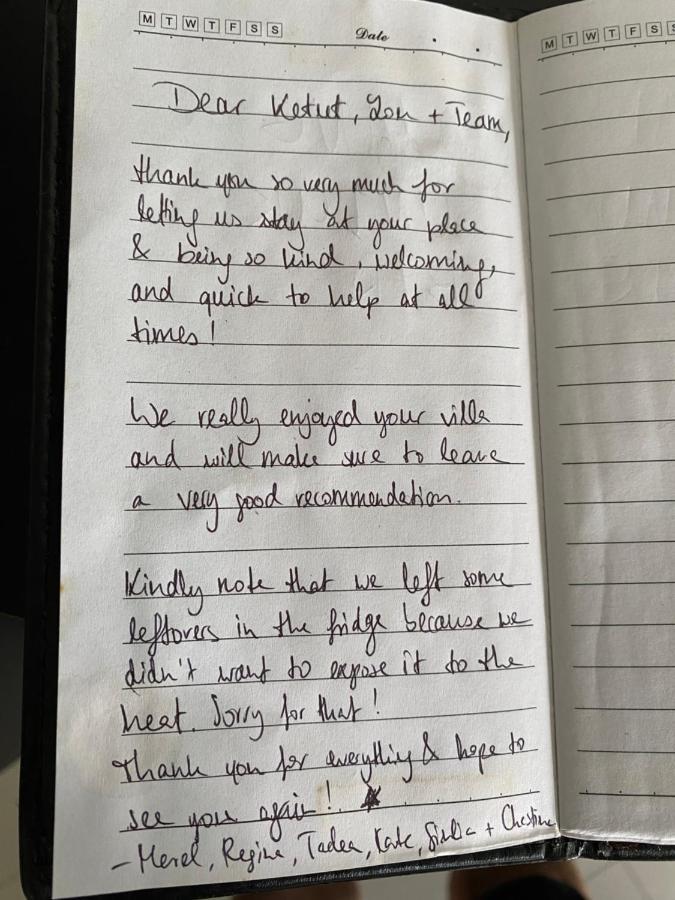 M T W T F S S Date
M T W T F S S
Dear Ketut, + Team,
thank you so very much for
letting us stay at your place
& being so kind, welcoming,
and quick to help at all
times!
We really enjoyed your villa
and will make sure to leave
a very good recommendation.
Kindly note that we left some
leftovers in the fridge because we
didn't want to expose it to the
heat. Sorry for that!
Thank you for everything & hope to
see you again!
- Merel, Regina, Kate, +